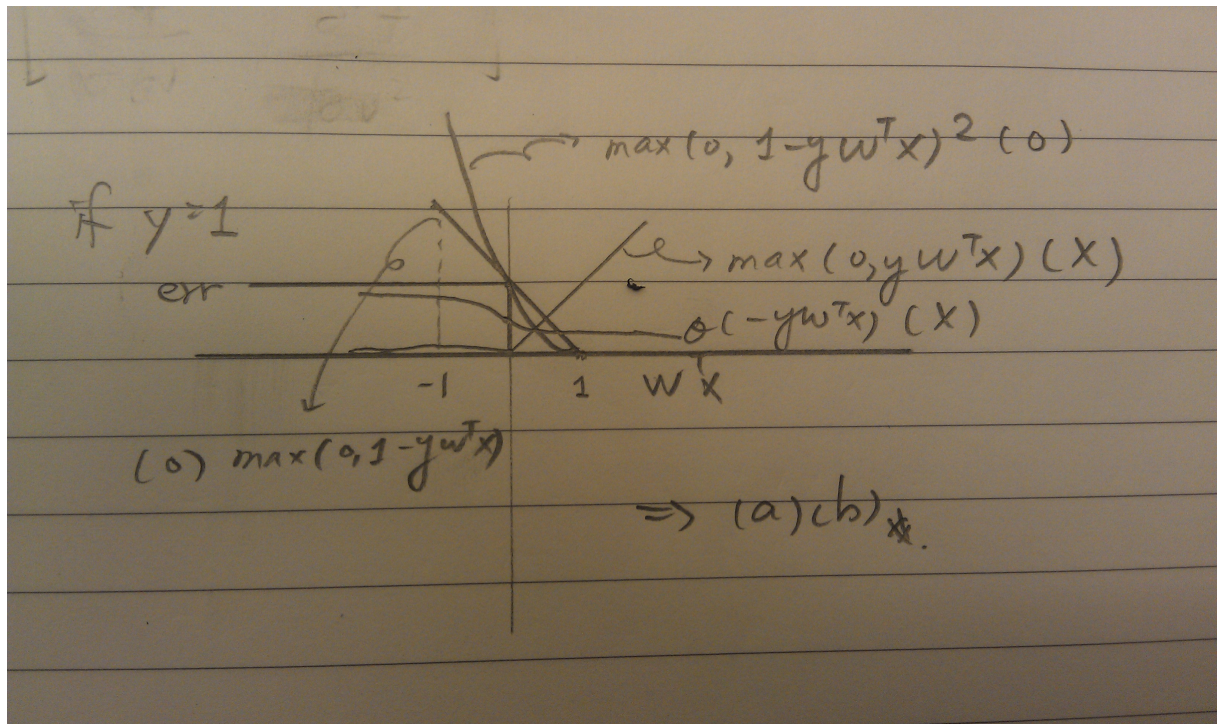 max(0, 1-yw^Tx)^2 (O)
if y=1
max(0, yw^Tx) (X)
err
θ(-yw^Tx) (X)
-1 1 w^Tx
(O) max(0, 1-yw^Tx)
⇒ (a)(b)